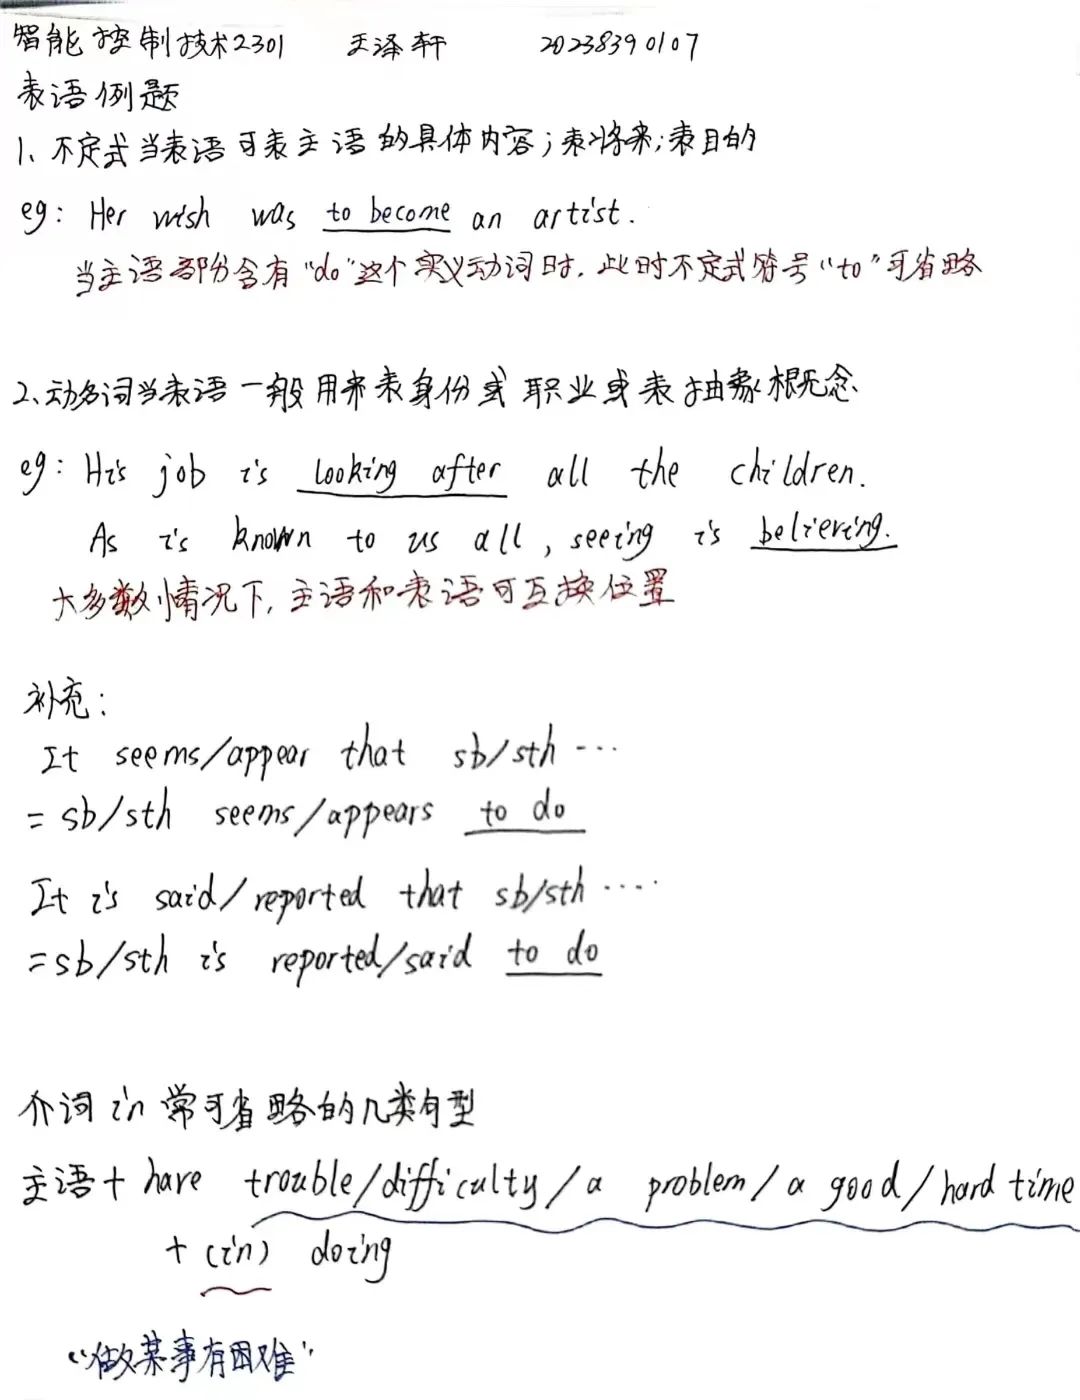 智能控制技术2301 王泽轩 20238390107
表语例题
1、不定式当表语可表主语的具体内容；表将来；表目的
eg: Her wish was to become an artist.
当主语部分含有“do”这个实义动词时，此时不定式符号“to”可省略
2、动名词当表语一般用来表身份或职业或表抽象概念
eg: His job is looking after all the children.
As is known to us all, seeing is believing.
大多数情况下，主语和表语可互换位置
补充：
It seems/appear that sb/sth ···
= sb/sth seems/appears to do
It is said/reported that sb/sth ····
= sb/sth is reported/said to do
介词in常可省略的几类句型
主语+ have trouble/difficulty/a problem/a good/hard time
+ (in) doing
“做某事有困难”